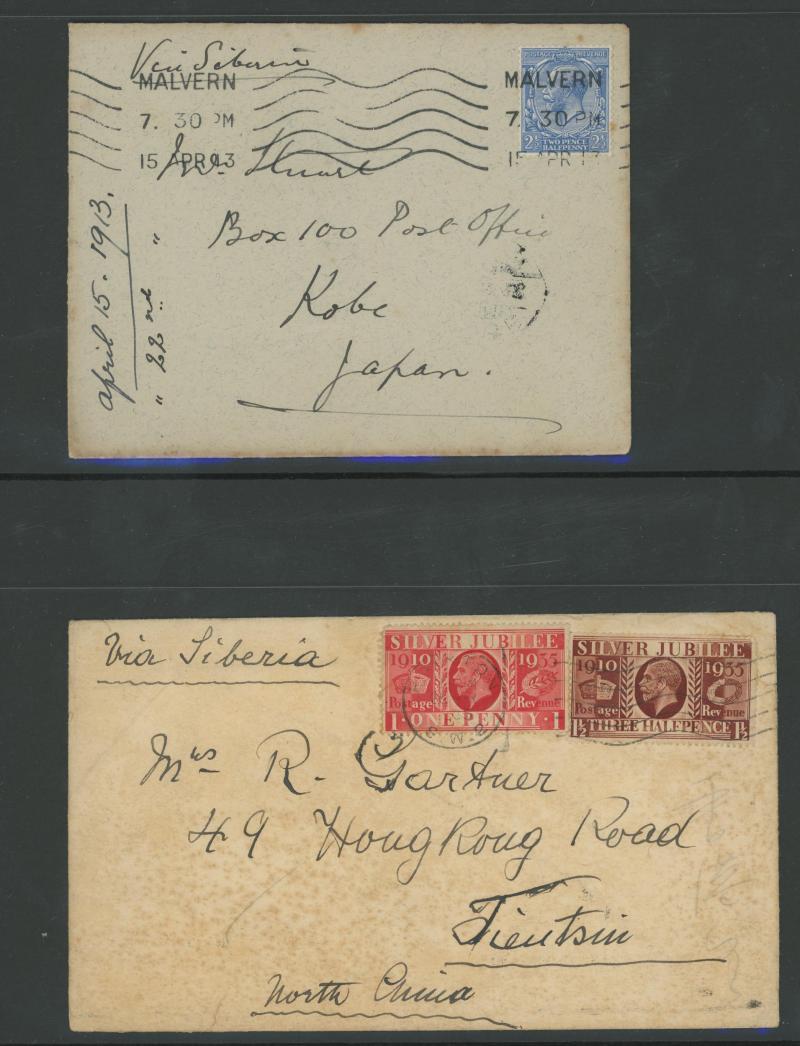 Via Siberia
POSTAGE REVENUE
MALVERN
7. 30 PM
15 APR 13
MALVERN
7. 30 PM
15 APR 13
2½ TWO PENCE HALFPENNY 2½
Stuart
Box 100 Post Office
Kobe
Japan.
April 15. 1913.
" 22nd "
Via Siberia
SILVER JUBILEE
1910 1935
Postage Revenue
1 · ONE PENNY · 1
SILVER JUBILEE
1910 1935
Postage Revenue
1½ THREE HALFPENCE 1½
Mrs R. Gartner
49 Hong Kong Road
Tientsin
North China